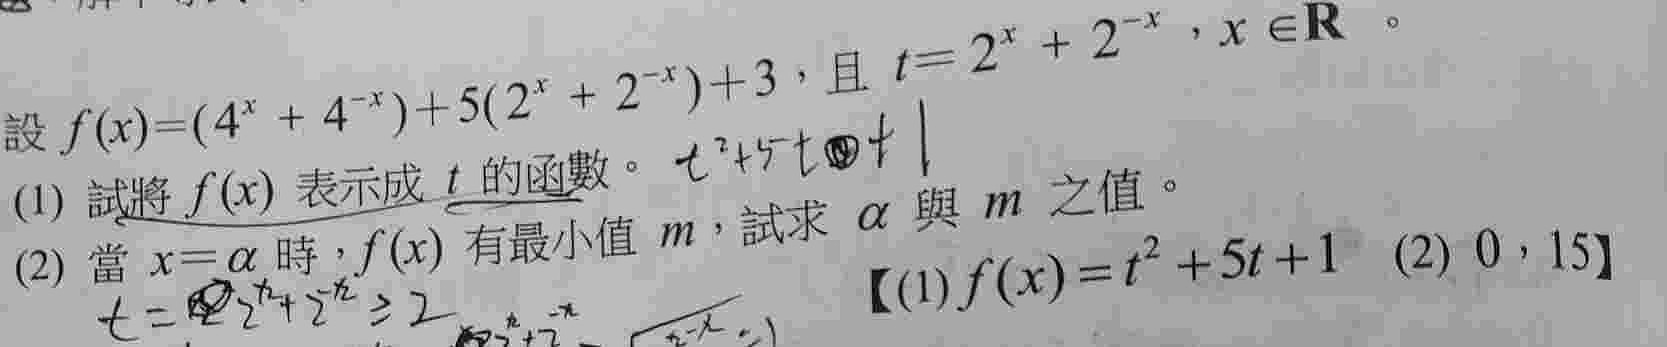 設 f(x)=(4^x + 4^{-x})+5(2^x + 2^{-x})+3,且 t=2^x + 2^{-x},x∈R 。
(1) 試將 f(x) 表示成 t 的函數。 t²+5t+1
(2) 當 x=α 時,f(x) 有最小值 m,試求 α 與 m 之值。
【(1) f(x)=t²+5t+1 (2) 0,15】
t = 2^x+2^{-x} ≥ 2